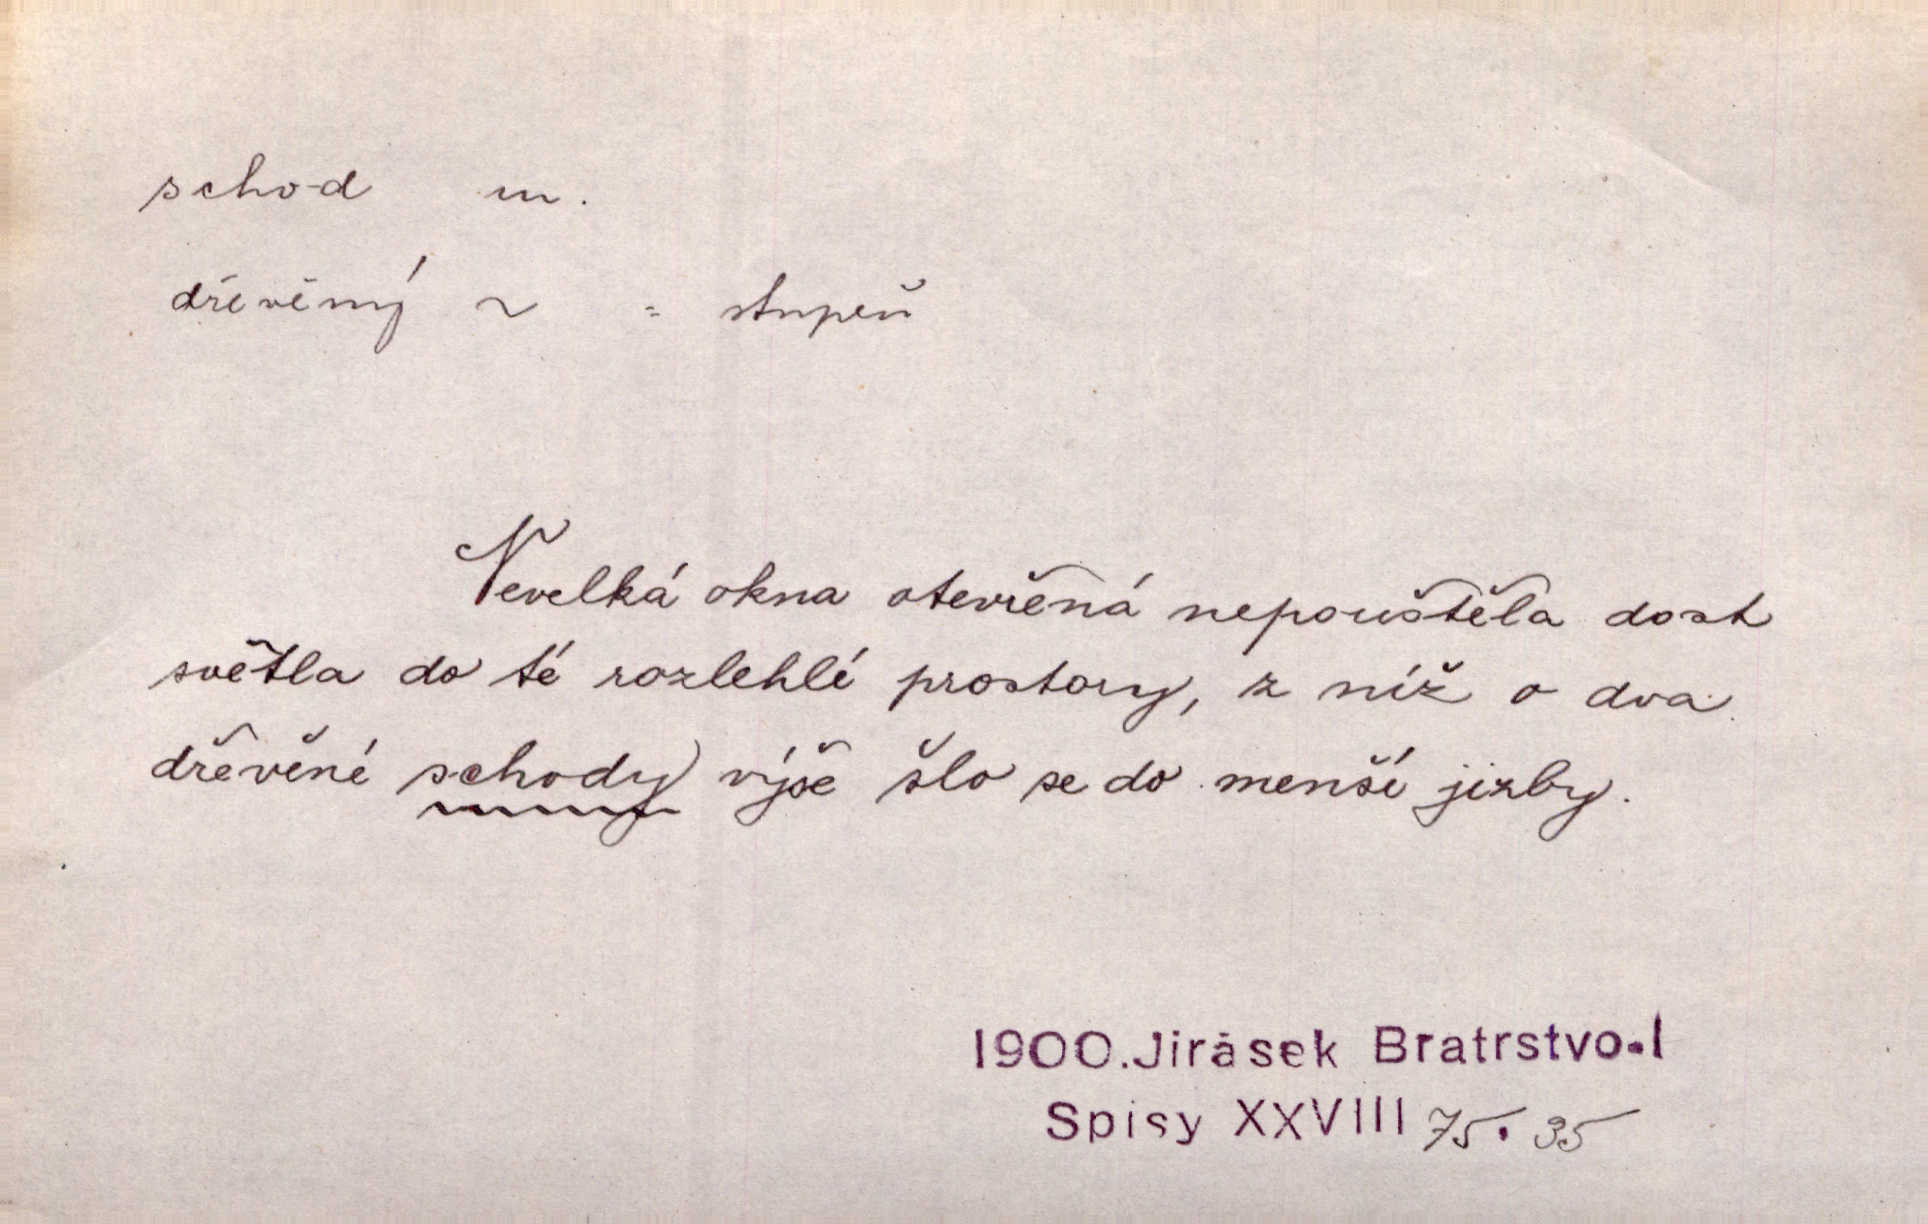 schod m.
dřevěný ~ = stupeň
Nevelká okna otevřená nepouštěla dost
světla do té rozlehlé prostory, z níž o dva
dřevěné schody výše šlo se do menší jizby.
1900. Jirásek Bratrstvo.I
Spisy XXVIII 75. 35